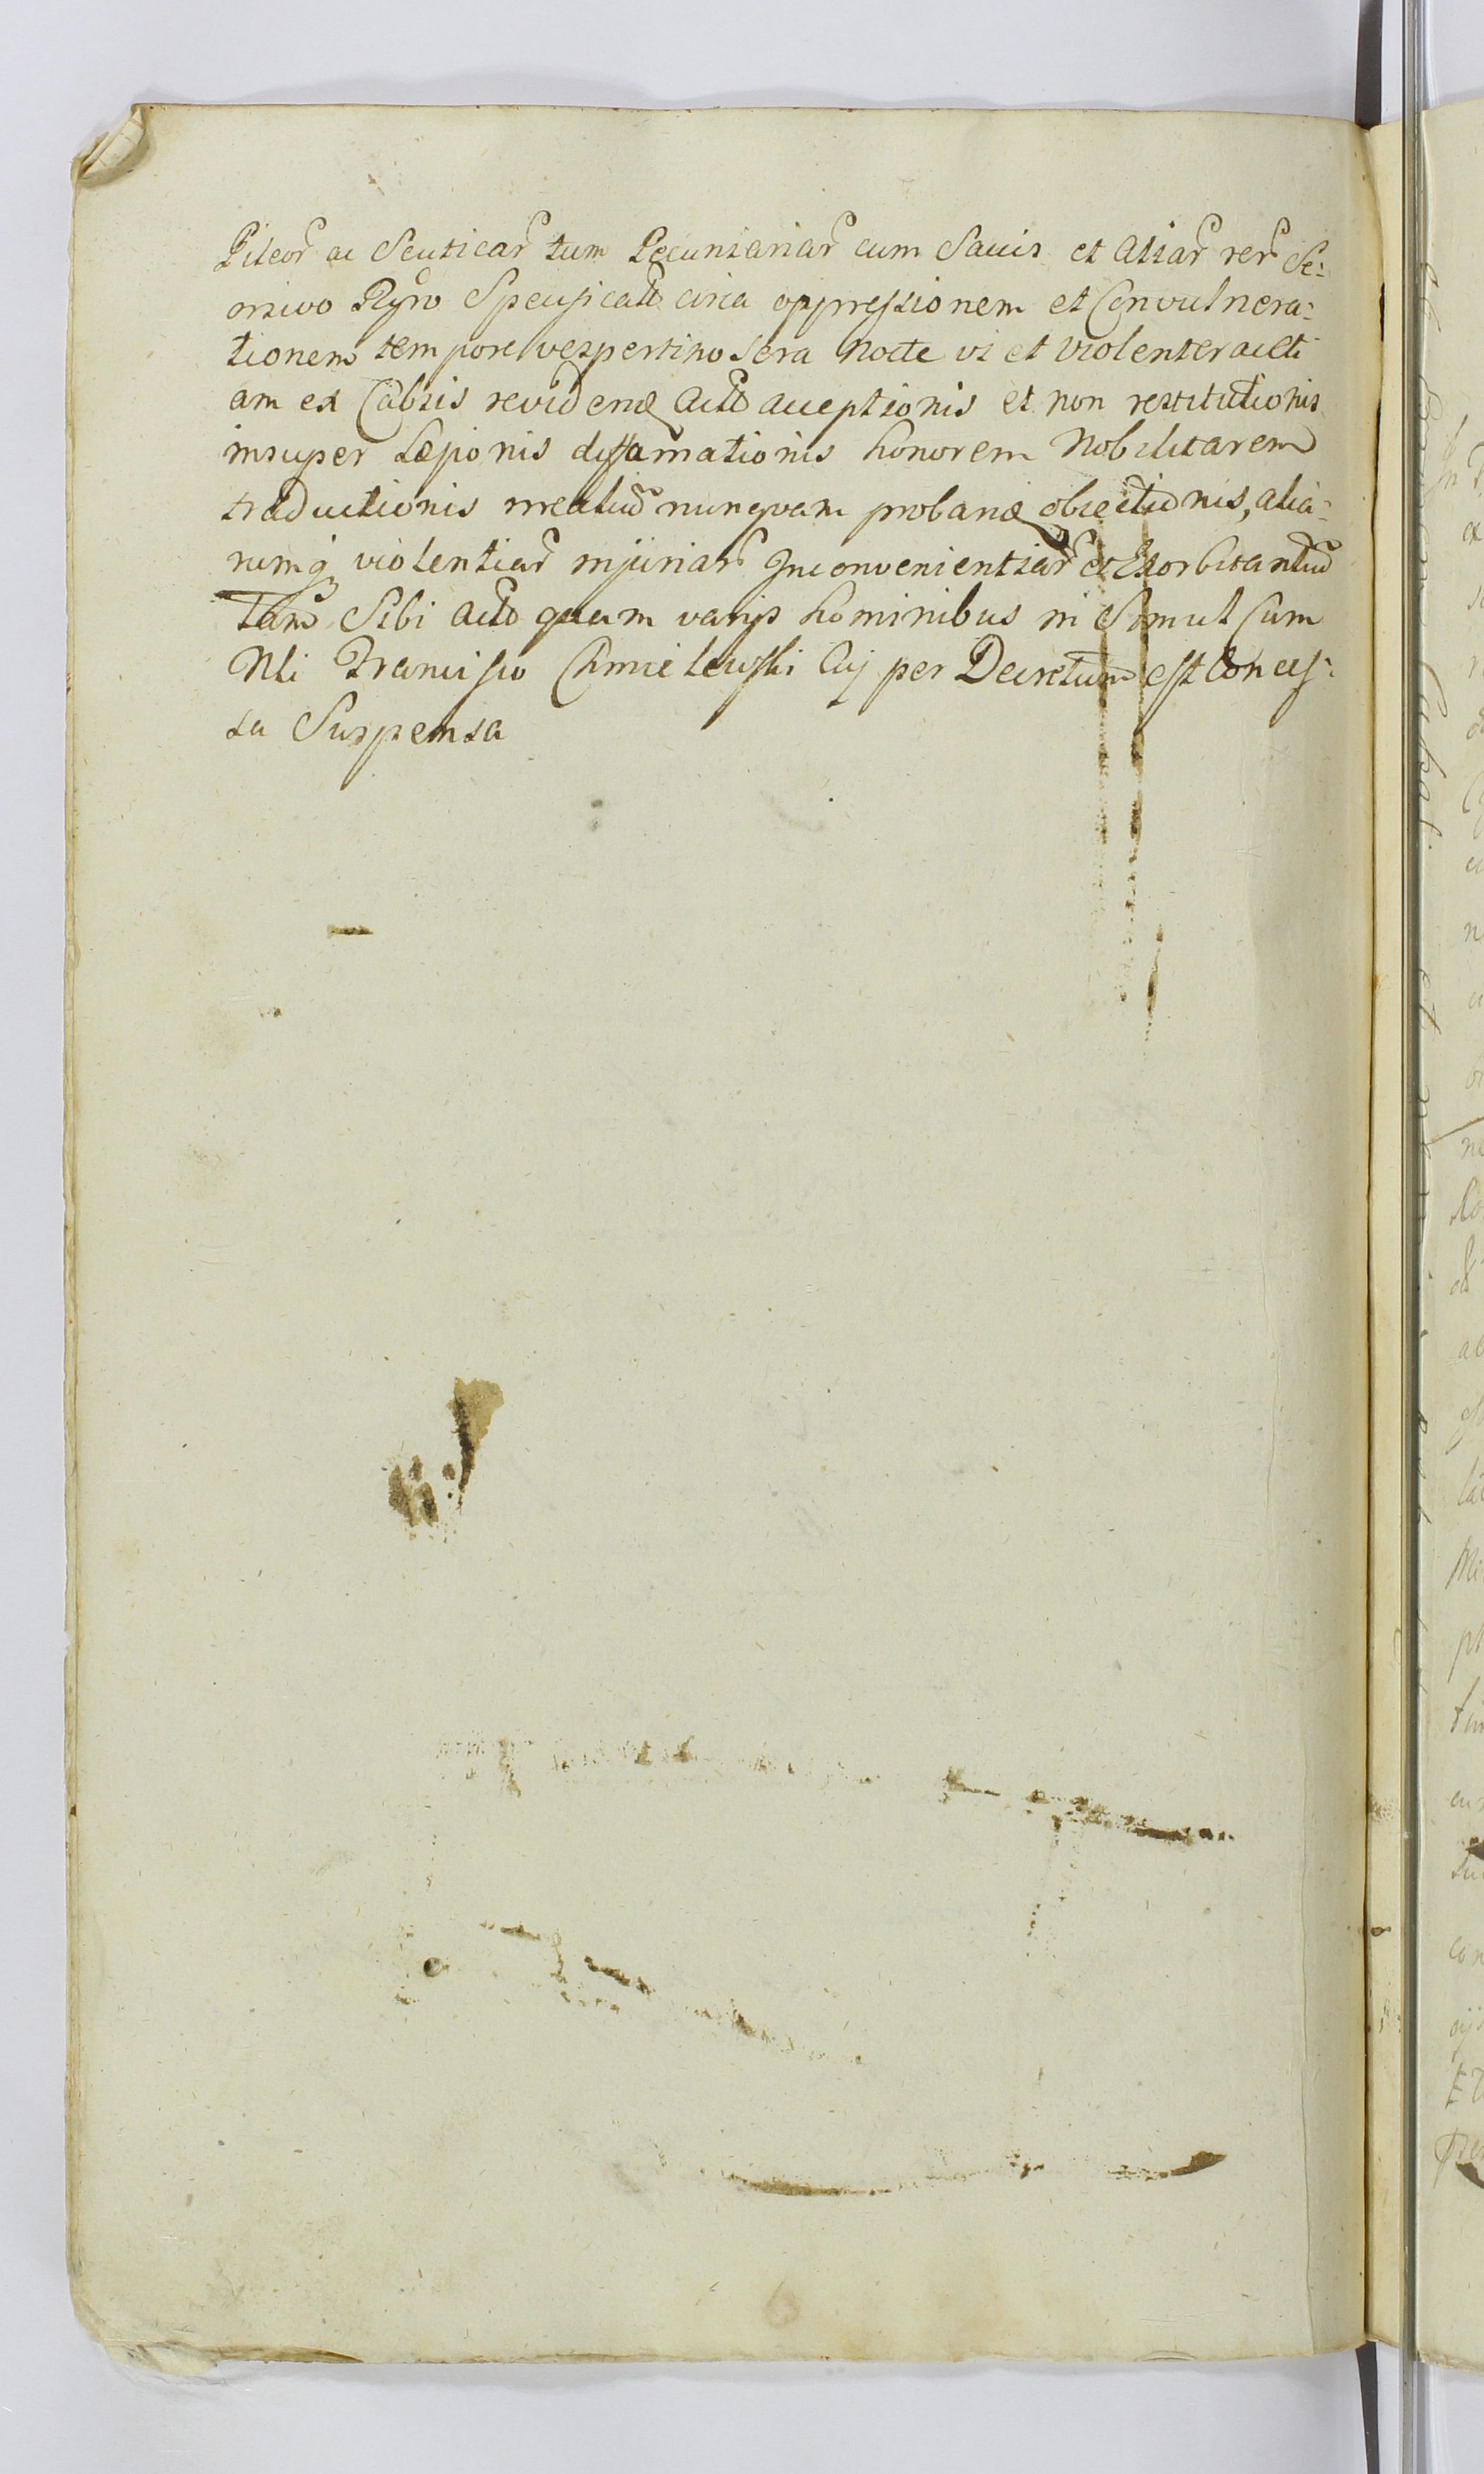 Pileor ac Scuticar tum Pecuniariar cum Saccis et aliar rer Se:
orsivo Rgro Specificatt circa oppressionem et Convulnera:
tionem tempore vespertino sera Nocte vi et violenter acti
am ex Cabsis acceptionis et non restitutionis
insuper Læsionis diffamationis honorem Nobilitarem
traductionis reatuu nunqvam probanæ obiectionis, alia:
rumq violentiar injuriar Inconvenientiar et Exorbitantiu
tam Sibi actt quam varijs hominibus in Simul Cum
Nli Francisco Chmielewski Cuj per Decretum est Conces:
sa Suspensa